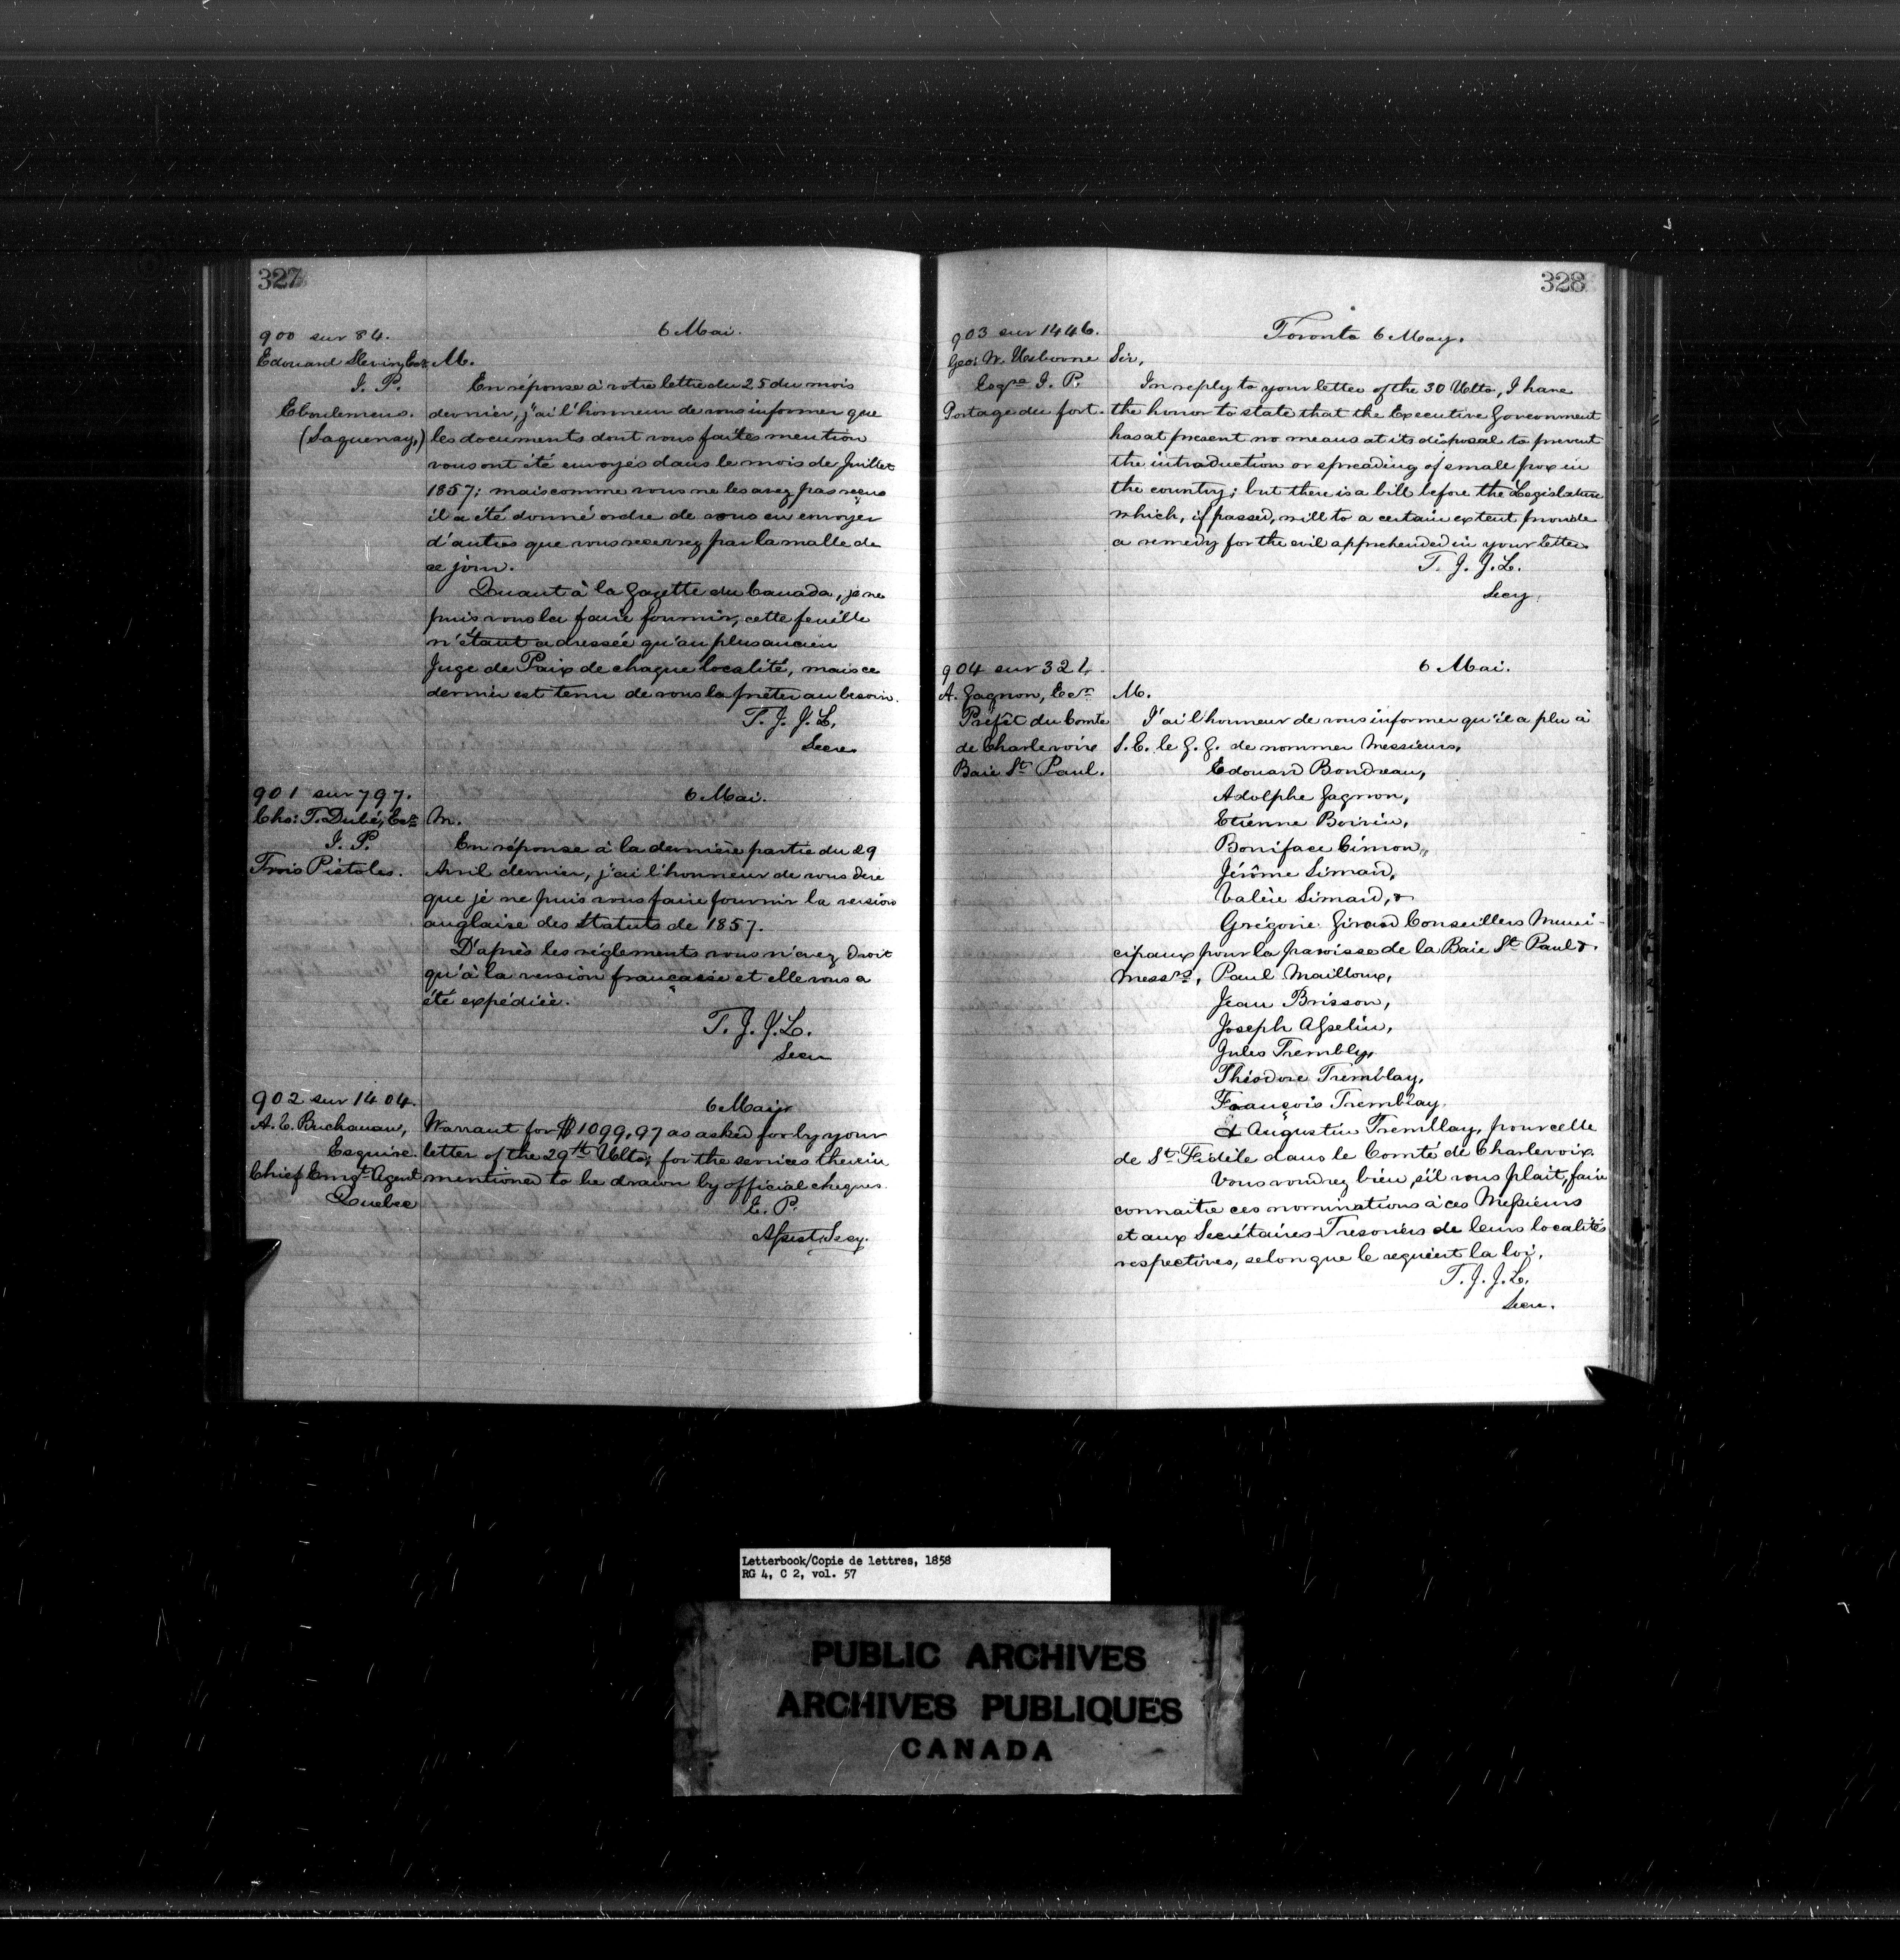 327
900 sur 84.
6 Mai.
Edouard Slevin, Ecr
J. P.
Eboulemens.
(Saguenay,)
M.
En réponse à votre lettre du 25 du mois
dernier, j'ai l'honneur de vous informer que
les documents dont vous faites mention
vous ont été envoyés dans le mois de Juillet
1857; mais comme vous ne les avez pas reçus
il a été donné ordre de vous en envoyer
d'autres que vous recevrez par la malle de
ce jour.
Quant à la Gazette du Canada, je ne
puis vous la faire fournir, cette feuille
n'étant adressée qu'au plus ancien
Juge de Paix de chaque localité, mais ce
dernier est tenu de vous la prêter au besoin.
T. J. J. L,
Secre
901 sur 797.
6 Mai.
Chs: T. Dubé, Ecr
J. P.
Trois Pistoles.
M.
En réponse à la dernière partie du 29
Avril dernier, j'ai l'honneur de vous dire
que je ne puis vous faire fournir la version
anglaise des Statuts de 1857.
D'après les réglements vous n'avez droit
qu'à la version française et elle vous a
été expédiée.
T. J. J. L.
Secre
902 sur 1404.
6 May
A. C. Buchanan,
Esquire.
Chief Emgt Agent
Quebec
Warrant for $1099,97 as asked for by your
letter of the 29th Ulto; for the services therein
mentioned to be drawn by official cheques.
E. P.
Assist Secy.
328
903 sur 1446.
Toronto 6 May.
Geo: W. Usborne
Esqre J. P.
Portage du fort.
Sir,
In reply to your letter of the 30 Ulto, I have
the honor to state that the Executive Government
has at present no means at its disposal to prevent
the introduction or spreading of small pox in
the country; but there is a bill before the Legislature
which, if passed, will to a certain extent provide
a remedy for the evil apprehended in your letter.
T. J. J. L.
Secy.
904 sur 321.
6 Mai.
A. Gagnon, Ecr
Préfêt du Comte
de Charlevoix
Baie St Paul.
M.
J'ai l'honneur de vous informer qu'il a plu à
S. E. le G. G. de nommer Messieurs,
Edouard Bondreau,
Adolphe Gagnon,
Etienne Boivin,
Boniface Cimon,
Jérôme Simard,
Valère Simard, &
Grégoire Girard Conseillers Muni-
cipaux pour la paroisse de la Baie St Paul &.
Messrs, Paul Mailloux,
Jean Brisson,
Joseph Asselin,
Jules Trembly,
Théodore Tremblay,
François Tremblay
& Augustin Tremblay, pour celle
de St Fidèle dans le Comté de Charlevoix.
Vous voudrez bien, s'il vous plait, faire
connaitre ces nominations à ces Messieurs
et aux Secrétaires-Tresoriers de leurs localités
respectives, selon que le requiert la loi.
T. J. J. L.
Secre.
Letterbook/Copie de lettres, 1858
RG 4, C 2, vol. 57
PUBLIC ARCHIVES
ARCHIVES PUBLIQUES
CANADA